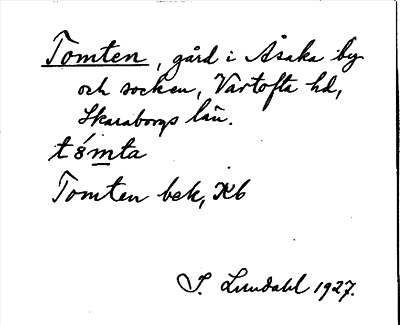 Tomten, gård i Åsaka by
och socken, Vartofta hd,
Skaraborgs län.
Tomten bek, Kb
I. Lundahl 1927.